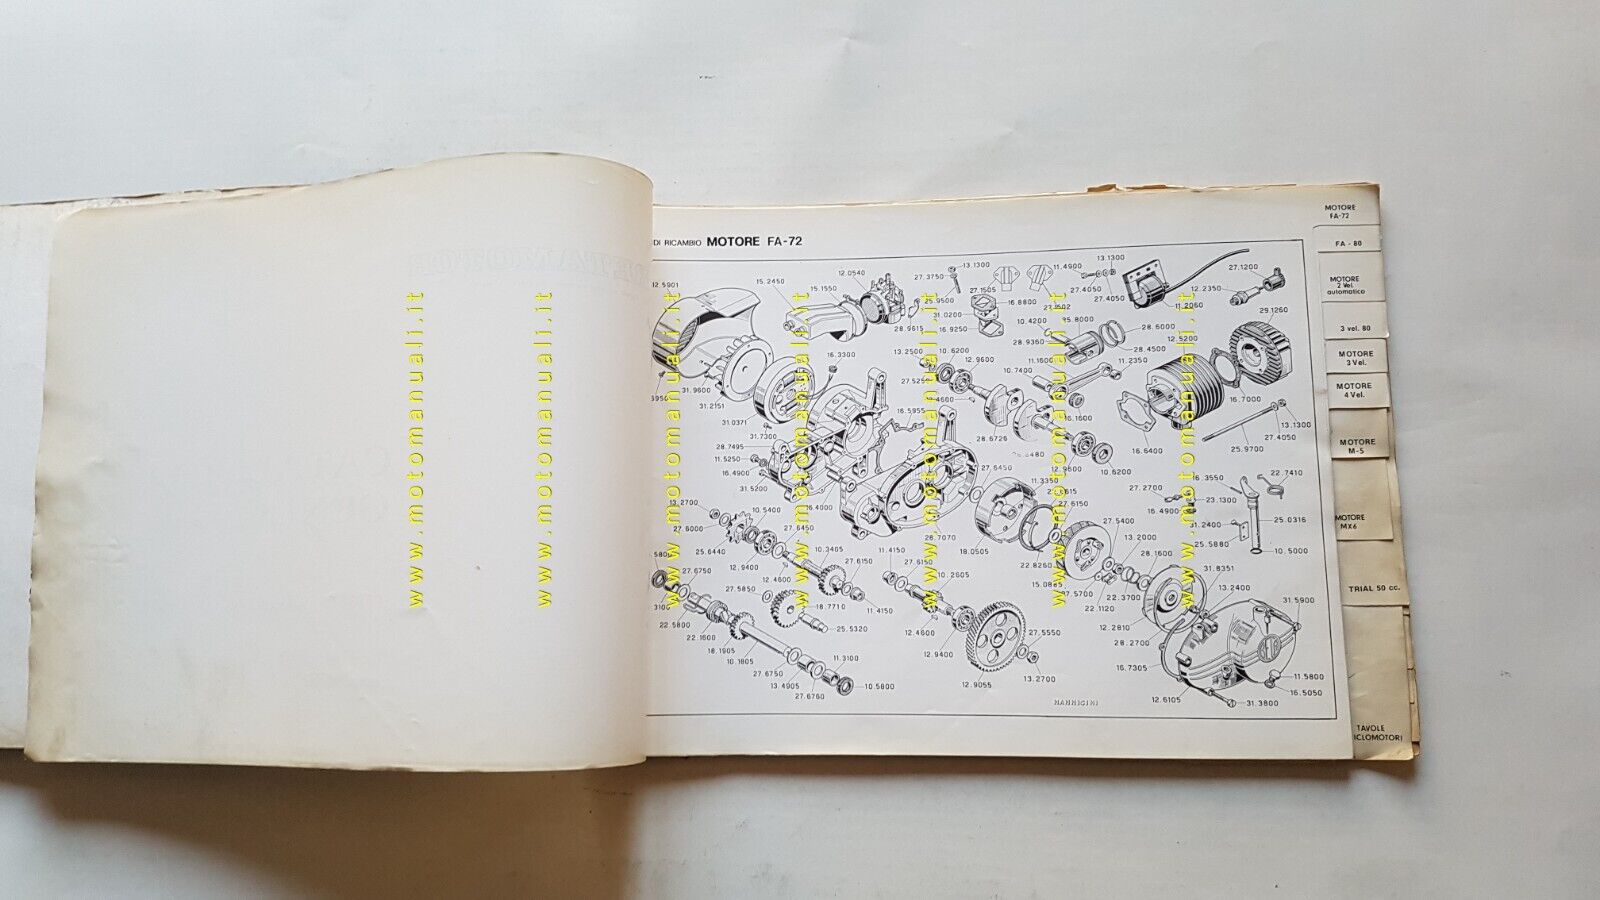 DI RICAMBIO MOTORE FA-72
12.5901
15.2450
15.1550
12.0540
27.3750
13.1300
27.1505
11.4900
13.1300
27.1200
25.9500
16.8800
27.4050
27.4050
12.2350
11.2060
28.9615
31.0200
16.9250
10.4200
28.6000
29.1260
16.3300
13.2500
10.6200
12.9600
28.9360
28.4500
12.5200
31.9600
31.2151
27.525
10.7400
11.1600
11.2350
16.7000
31.0371
16.5955
16.1600
13.1300
27.4050
31.7300
28.7495
28.6726
16.6400
25.9700
11.5250
16.4900
31.5200
27.6450
12.9600
10.6200
16.3550
22.7410
11.3350
27.2700
23.1300
13.2700
10.5400
27.6450
16.4000
27.6150
16.4900
27.6000
31.2400
25.0316
25.6440
10.3405
28.7070
18.0505
27.5400
13.2000
25.5880
10.5000
12.9400
27.6150
11.4150
27.6150
22.8260
28.1600
27.6750
12.4600
10.2605
15.0885
31.8351
27.5850
27.5700
22.3700
13.2400
3100
18.7710
11.4150
22.1120
31.5900
22.5800
25.5320
12.4600
12.2810
22.1600
27.5550
28.2700
18.1905
12.9400
10.1805
11.3100
16.7305
27.6750
13.2700
11.5800
13.4905
10.5800
12.9055
12.6105
16.5050
27.6760
31.3800
MANNIGINI
MOTORE
FA-72
FA - 80
MOTORE
2 Vel.
automatico
3 vel. 80
MOTORE
3 Vel.
MOTORE
4 Vel.
MOTORE
M-5
MOTORE
MX6
TRIAL 50 cc.
TAVOLE
ICLOMOTORI
www.motomanuali.it
www.motomanuali.it
www.motomanuali.it
www.motomanuali.it
www.motomanuali.it
www.motomanuali.it
www.motomanuali.it